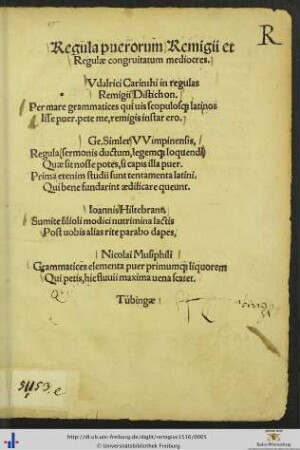 Regula puerorum Remigii et
Regulæ congruitatum mediocres.
R
Vdalrici Carinthi in regulas
Remigii Distichon.
Per mare grammatices qui uis scopulosq; latinos
Isse puer. pete me, remigis instar ero.
Ge. Simler VVimpinensis,
Regula sermonis ductum, legemq; loquendi
Quæ sit nosse potes, si capis illa puer.
Prima etenim studii sunt tentamenta latini.
Qui bene fundarint ædificare queunt.
Ioannis Hiltebrant,
Sumite filioli modici nutrimina lactis
Post uobis alias rite parabo dapes,
Nicolai Musiphili
Grammatices elementa puer primumq; liquorem
Qui petis, hic fluuii maxima uena scatet.
Tübingæ
http://dl.ub.uni-freiburg.de/diglit/remigius1510/0005
© Universitätsbibliothek Freiburg